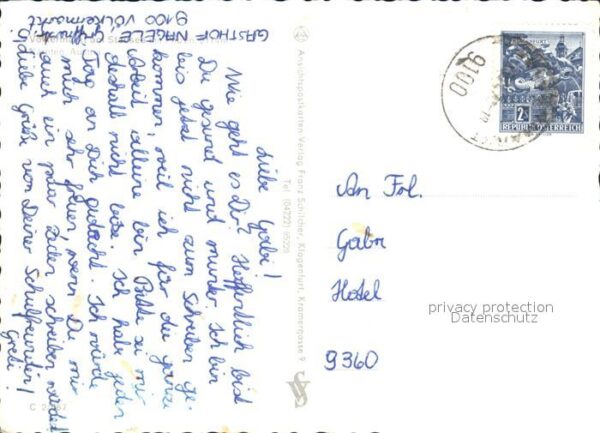 GASTHOF NAGELE
9100 Völkermarkt
Liebe Gabi!
Wie geht es Dir? Hoffentlich bist
Du gesund und munter. Ich bin
bis jetzt nicht zum Schreiben ge-
kommen, weil ich für die ganze
Arbeit alleine bin. Bitte sei mir
deshalb nicht böse. Ich habe jeden
Tag an Dich gedacht. Ich würde
mich sehr freuen, wenn Du mir
auch ein paar Zeilen schreiben würdest
Liebe Grüße von Deiner Schulfreundin!
Greti
Ansichtspostkarten-Verlag Franz Schilcher, Klagenfurt, Kramergasse 9
Tel. (04222) 85220
9100
2S
REPUBLIK ÖSTERREICH
An Frl.
Gabi
Hotel
9360
privacy protection
Datenschutz